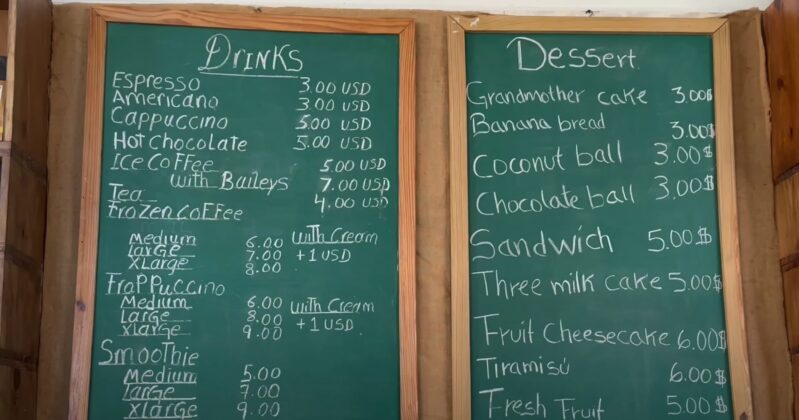 Drinks
Espresso 3.00 USD
Americano 3.00 USD
Cappuccino 5.00 USD
Hot chocolate 5.00 USD
Ice Coffee 5.00 USD
with Baileys 7.00 USD
Tea 4.00 USD
Frozen Coffee
Medium 6.00 with Cream
Large 7.00 +1 USD
XLarge 8.00
Frappuccino
Medium 6.00 with Cream
Large 8.00 +1 USD
XLarge 9.00
Smoothie
Medium 5.00
Large 7.00
XLarge 9.00
Dessert
Grandmother cake 3.00$
Banana bread 3.00$
Coconut ball 3.00$
Chocolate ball 3.00$
Sandwich 5.00$
Three milk cake 5.00$
Fruit Cheesecake 6.00$
Tiramisú 6.00$
Fresh Fruit 5.00$